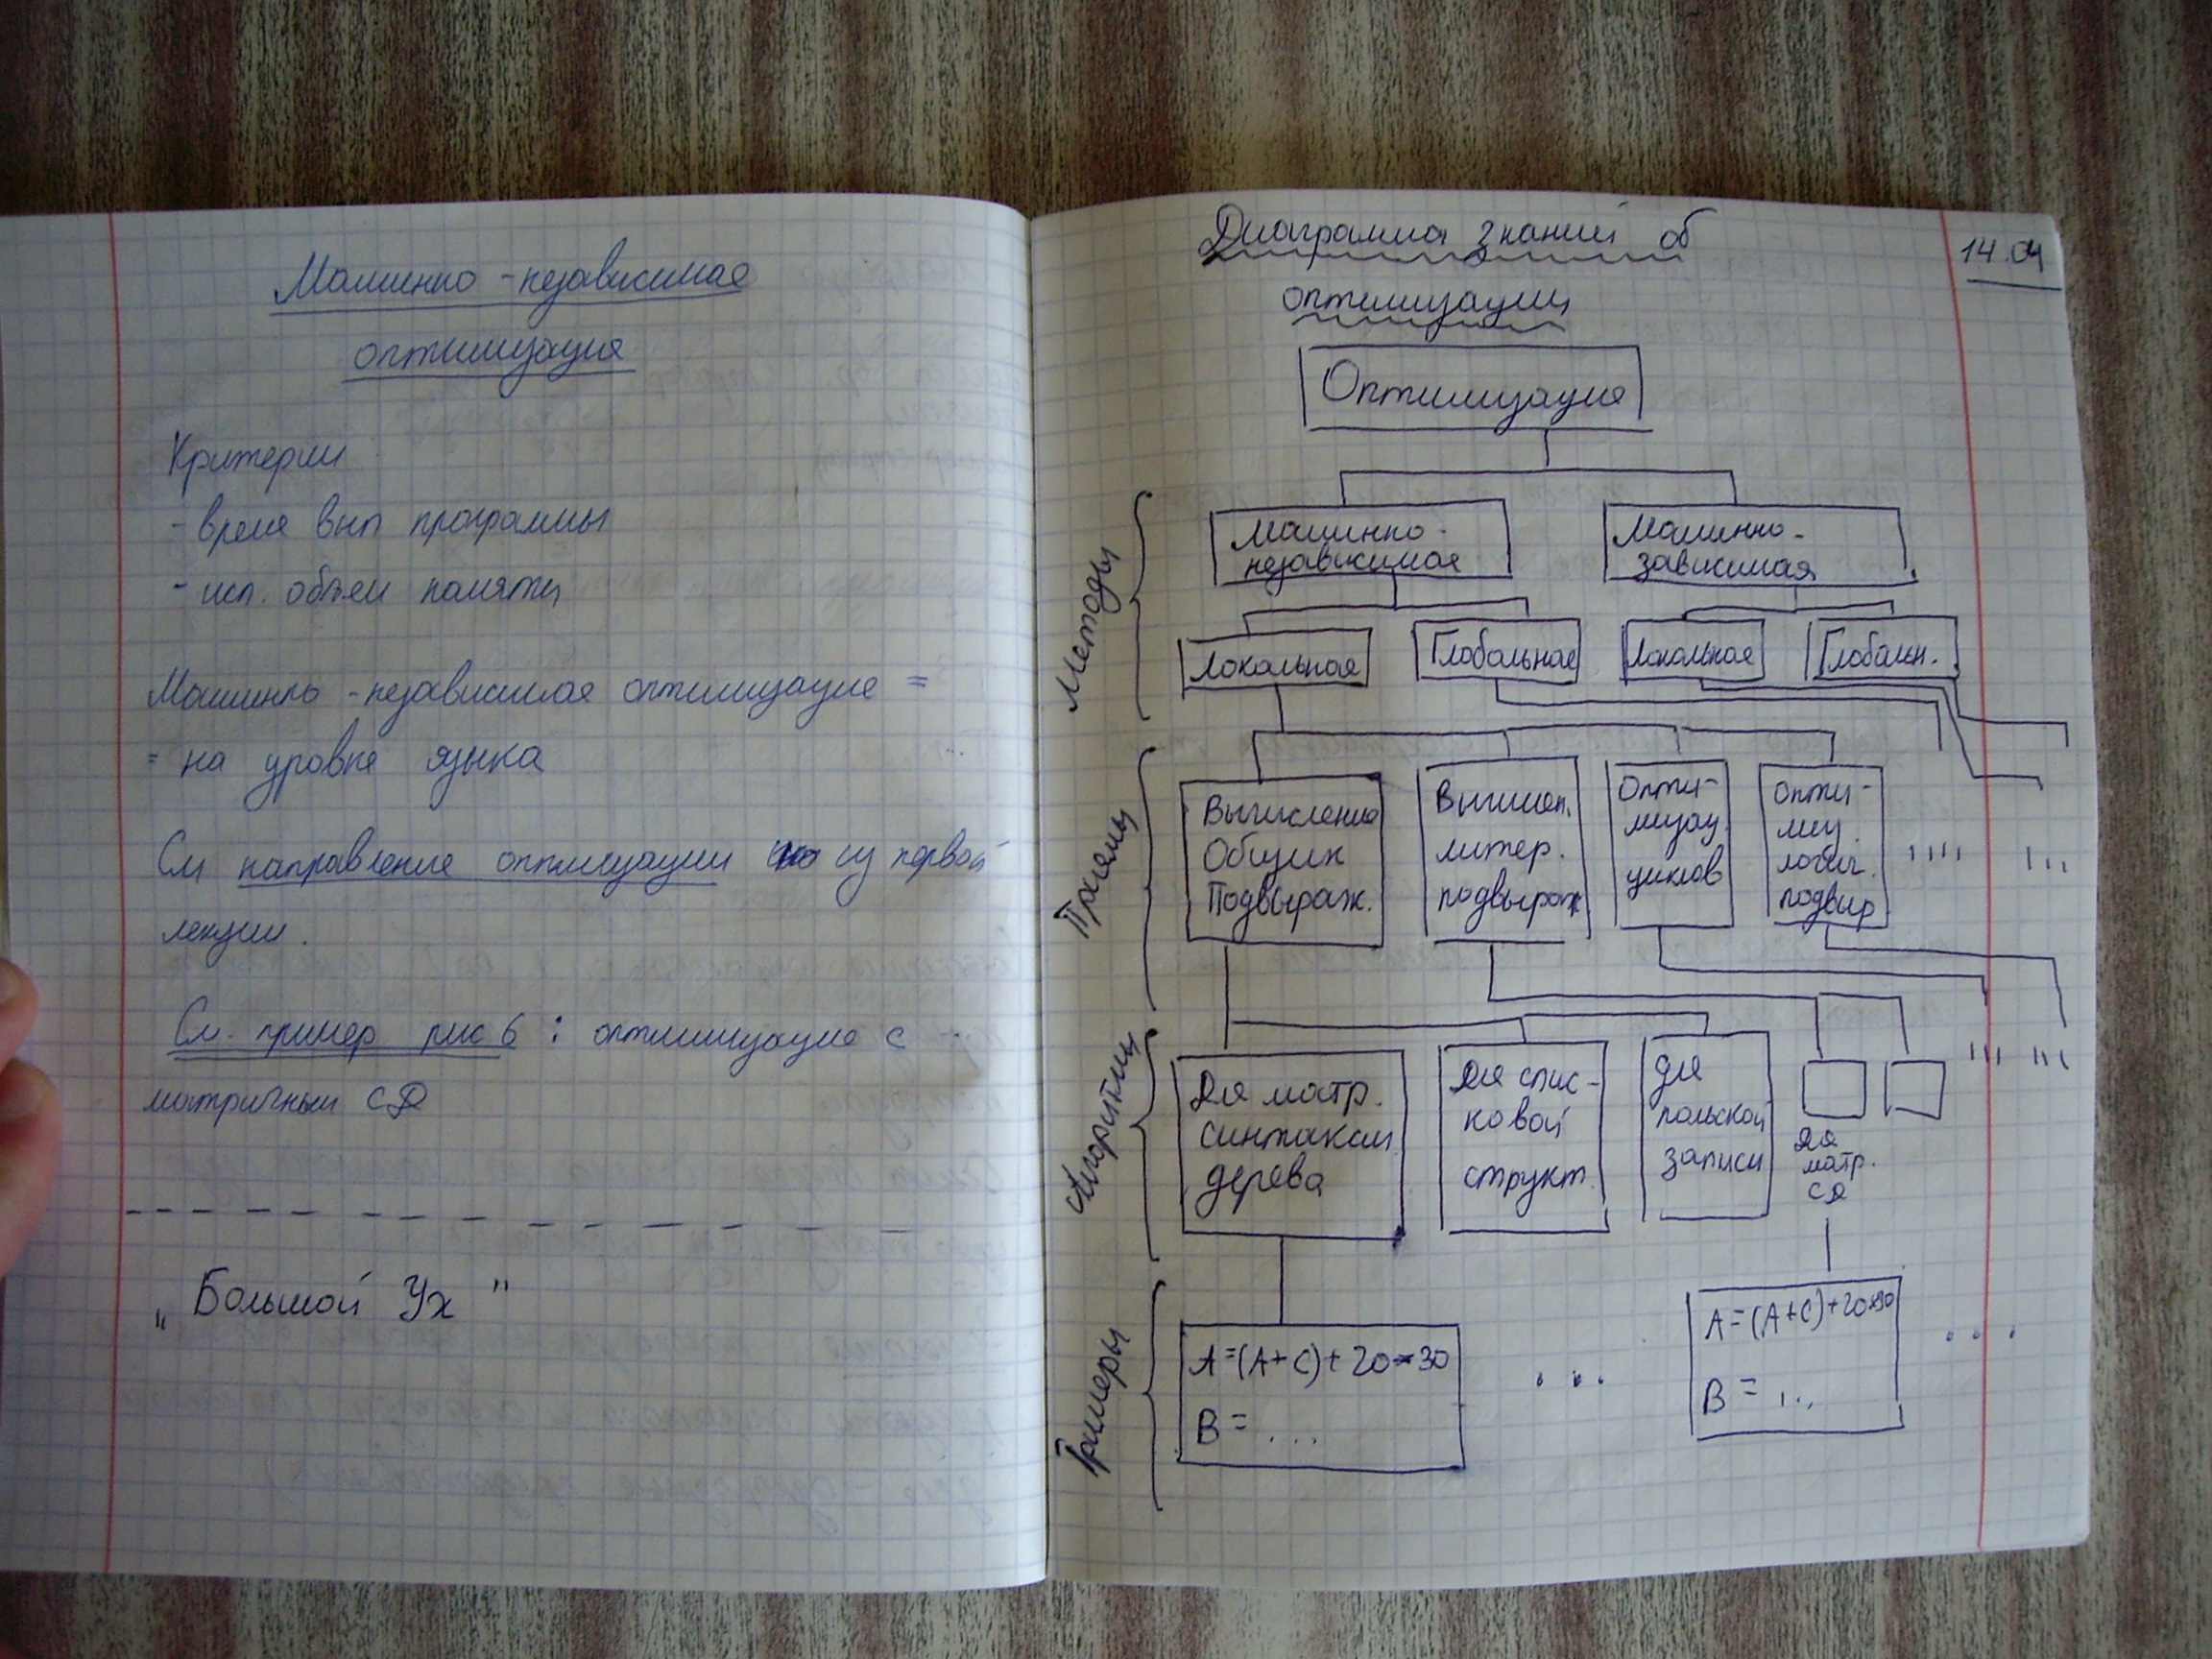 Машинно-независимая
оптимизация
Критерии
- время вып программы
- исп. объем памяти
Машинно-независимая оптимизация =
= на уровне языка
См направление оптимизации из первой
лекции.
См. пример рис 6 : оптимизация с
матричным СД
„Большой Ух"
Диаграмма знаний об
14.04
оптимизации
Оптимизация
Методы
Машинно-
независимая
Машинно-
зависимая
Локальная
Глобальная
Локальная
Глобальн.
Приемы
Вычисление
Общих
Подвыраж.
Вычислен.
литер.
подвыраж
Опти-
мизац.
циклов
опти-
миз.
логич.
подвыр
Алгоритмы
Для матр.
синтаксич
дерева
Для спис-
ковой
структ.
Для
польской
записи
Для
матр.
СД
Примеры
A=(A+C)+20*30
B = ...
...
A=(A+C)+20*30
B = ...
...